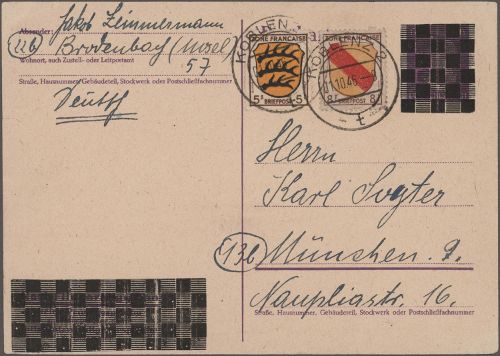 Absender: Jakob Zimmermann
(22b) Brodenbach (Mosel)
Wohnort, auch Zustell- oder Leitpostamt
57
Straße, Hausnummer, Gebäudeteil, Stockwerk oder Postschließfachnummer
Deutsch
KOBLENZ 2
ZONE FRANÇAISE
5 BRIEFPOST 5
KOBLENZ 2
10.46
t
ZONE FRANÇAISE
8 BRIEFPOST 8
Herrn
Karl
(13b) München. 9.
Naupliastr. 16.
Straße, Hausnummer, Gebäudeteil, Stockwerk oder Postschließfachnummer